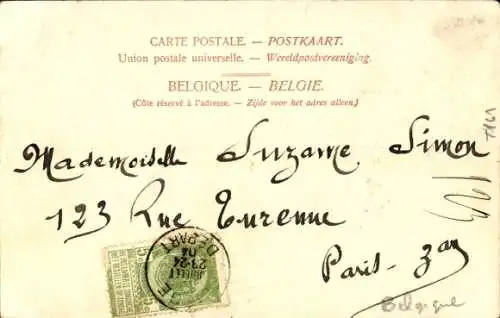 CARTE POSTALE. — POSTKAART.
Union postale universelle. — Wereldpostvereeniging.
BELGIQUE. — BELGIE.
(Côte réservé à l'adresse. — Zijde voor het adres alleen.)
Mademoiselle Suzanne Simon
123 Rue Turenne
Paris
DEPART
23-24
JUILLET
Belgique